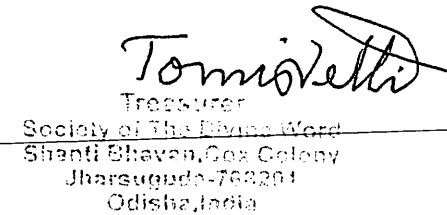 Treasurer
Society of The Divine Word
Shanti Bhavan, Cox Colony
Jharsuguda-768201
Odisha, India